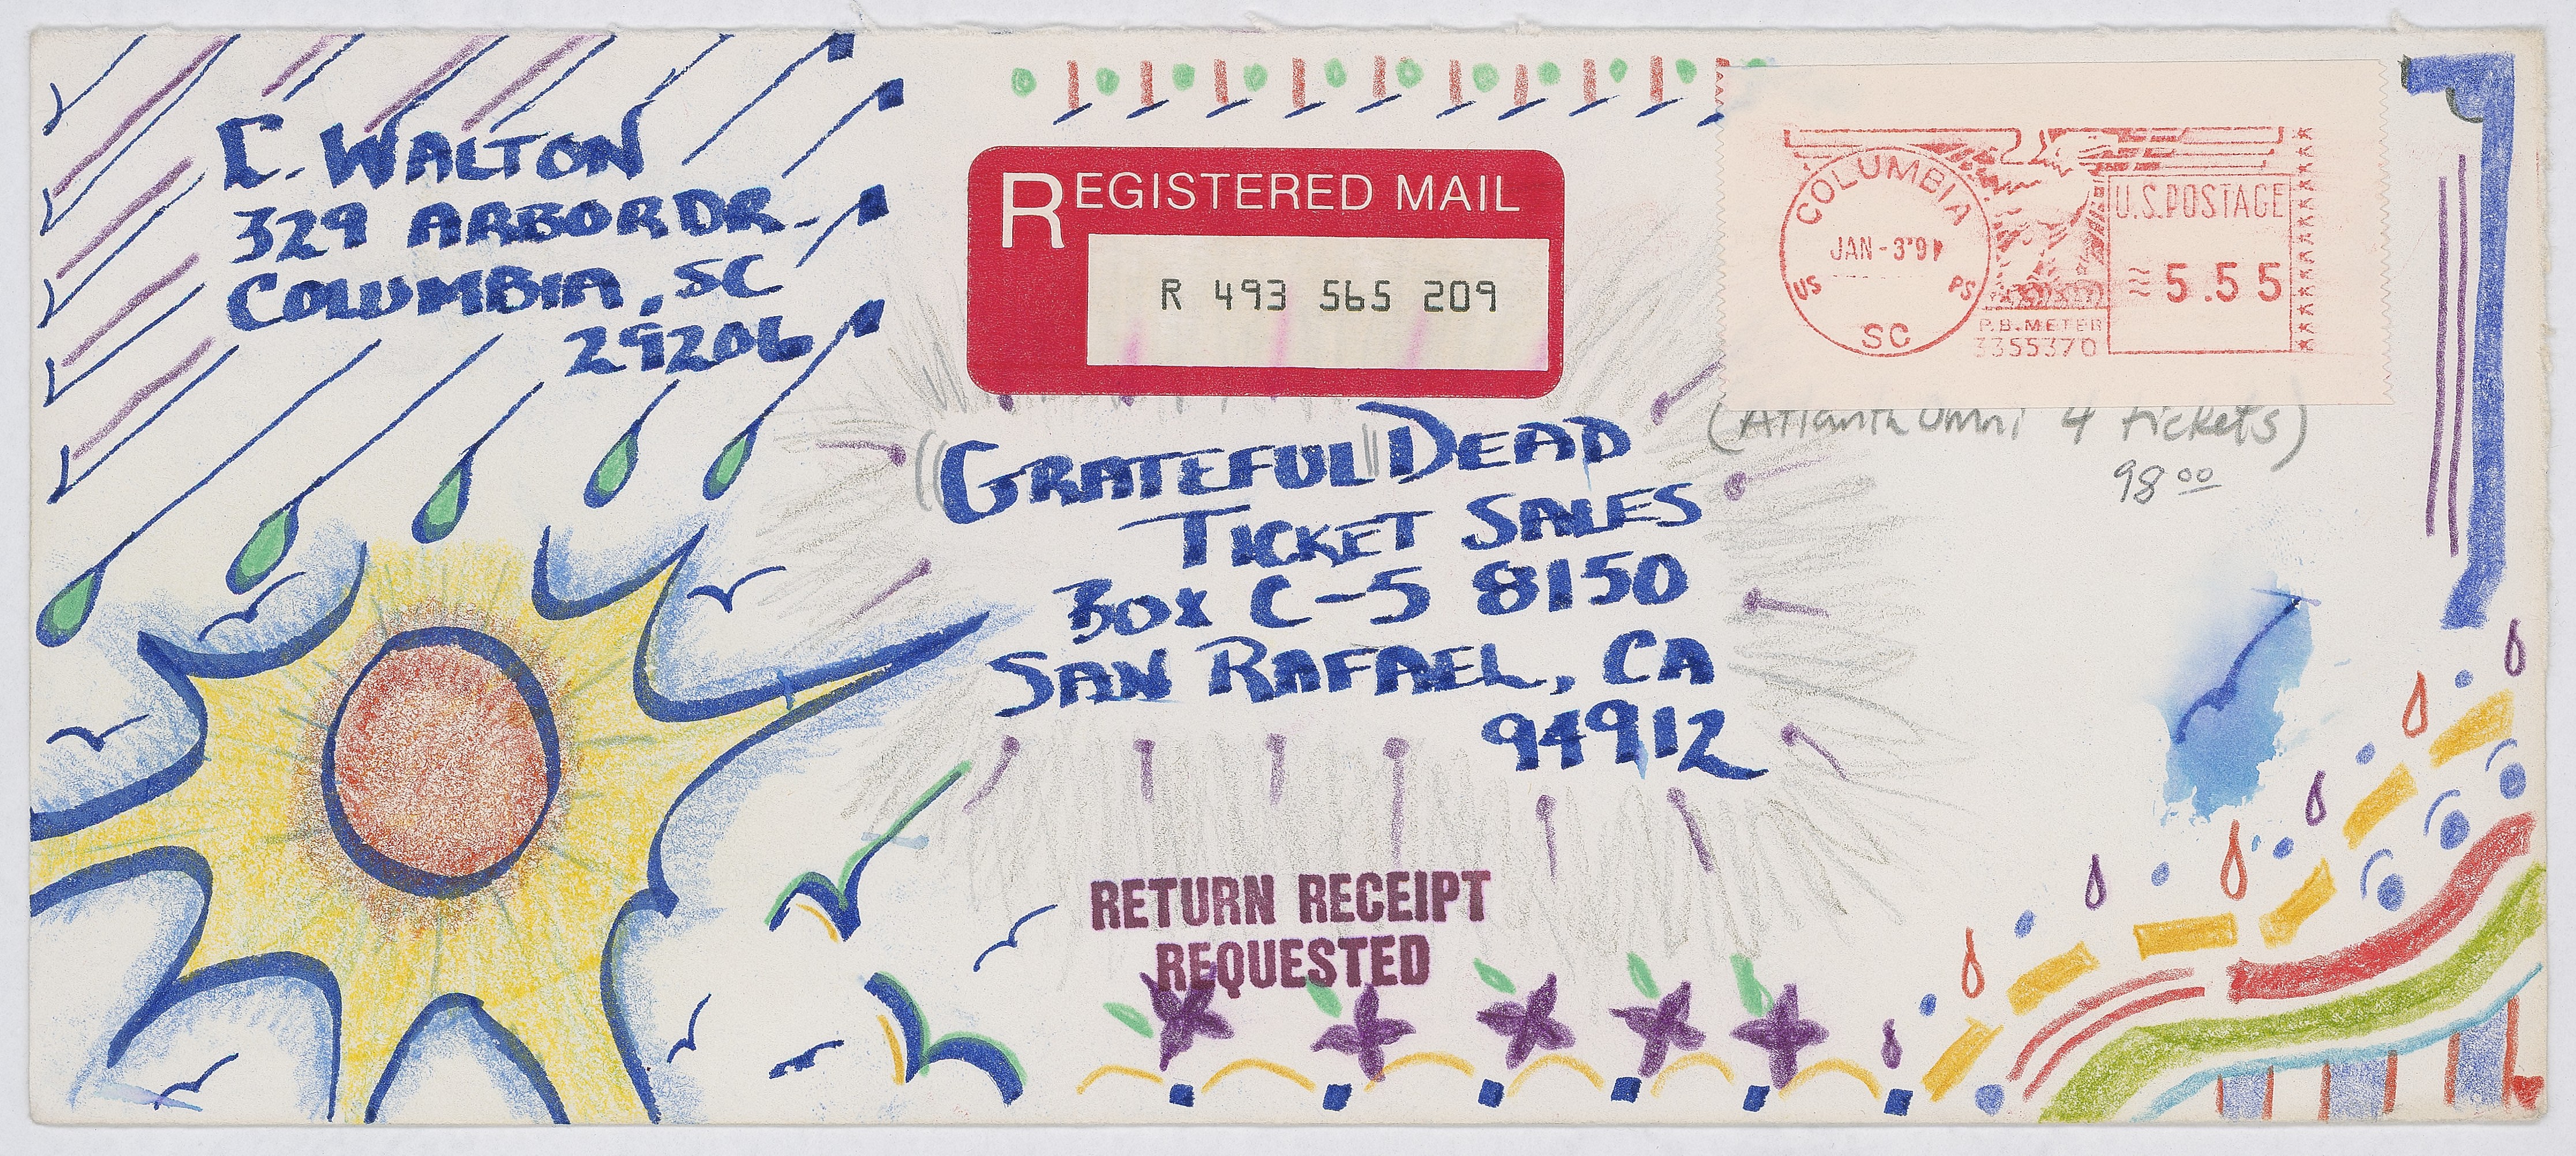 C. WALTON
329 ARBOR DR.
COLUMBIA, SC
29206
REGISTERED MAIL
R 493 565 209
COLUMBIA
JAN-3'91
US PS
SC
P.B. METER
3355370
U.S. POSTAGE
5.55
(Atlanta Omni 4 tickets)
98.00
GRATEFUL DEAD
TICKET SALES
BOX C-5 8150
SAN RAFAEL, CA
94912
RETURN RECEIPT
REQUESTED